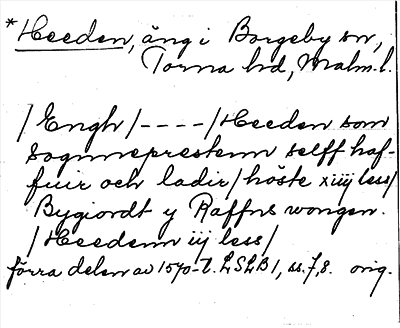 *Heeden, äng i Borgeby sn,
Torna hd, Malm. l.
/ Engh / - - - - / Heeden som
Sognneprestenn selff haf-
fuir och ladir / höste xiiij less /
Bygiordt y Raffns wongen.
/ Heedenn iij less /
förra delen av 1570-t. LSLB 1, ss. 7, 8. orig.